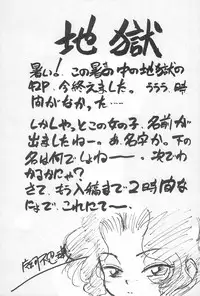 地獄
暑い!この暑さの中の地獄の
42P、今終えました。ううう、時
間がなかった……
しかしやっとこの女の子、名前が
出ましたねー。あ、名字か。下の
名は何でしょねー──。決てわ
かるかにゃ?
さて、もう入稿まで2時間な
にょで、これにてー。